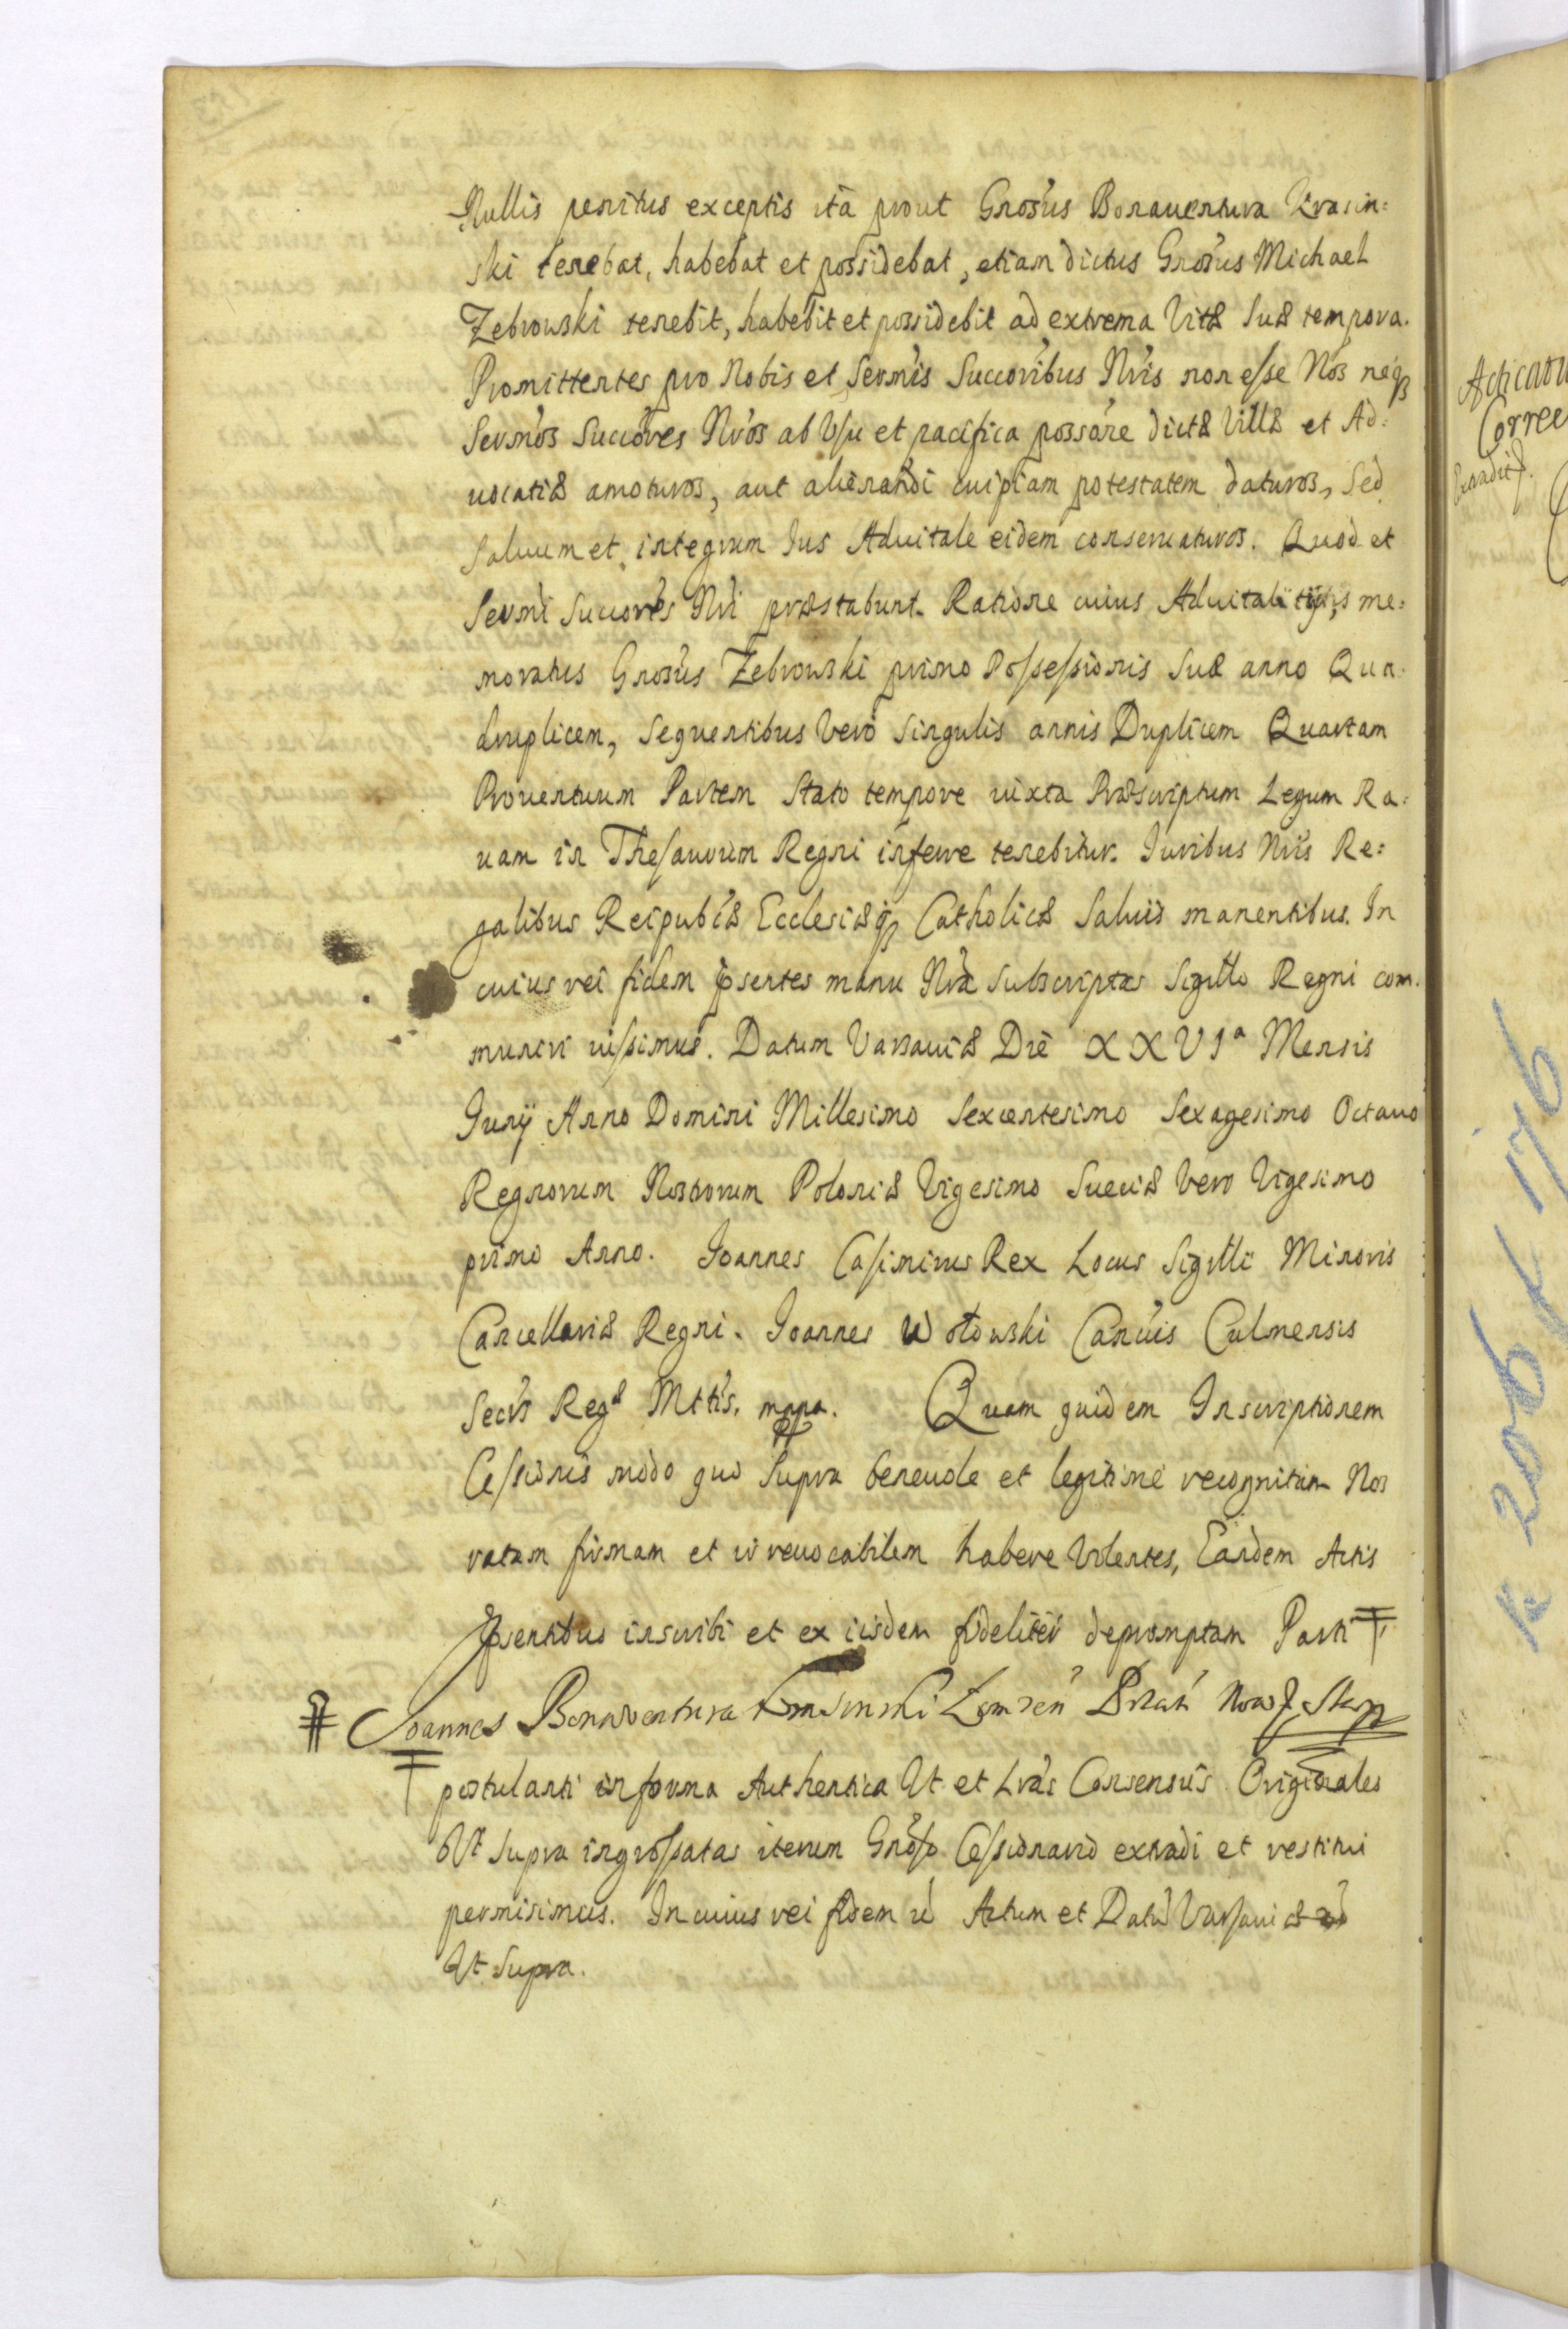 Nullis penitus exceptis ita prout Gnosus Bonauentura Krasin:
ski tenebat, habebat et possidebat, etiam dictus Gnosus Michael
Zebrowski tenebit, habebit et possidebit ad extrema Vitæ Suæ tempora.
Promittentes pro Nobis et Sermis Succoribus Nris non esse Nos neq3
Sermos Succores Nros ab Usu et pacifica possone dictæ Villæ et Ad:
uocatiæ amoturos, aut alienandi cuipiam potestatem daturos, Sed
Saluum et integrum Ius Aduitale eidem conseruaturos. Quod et
Sermi Succores Nri præstabunt. Ratione cuius Aduitalitatis me:
moratus Gnosus Zebrowski primo Possessionis Suæ anno Qua:
druplicem, Sequentibus Vero Singulis annis Duplicem Quartam
Prouentuum Partem Stato tempore iuxta Præscriptum Legum Ra:
uam in Thesaurum Regni inferre tenebitur. Iuribus Nris Re:
galibus Reipubcæ Ecclesiæq3 Catholicæ Saluis manentibus. In
cuius rei fidem pñsentes manu Nra Subscriptas Sigillo Regni com:
muniri iussimus. Datum Varsauiæ Die XXVIa Mensis
Iunij Anno Domini Millesimo Sexcentesimo Sexagesimo Octauo
Regnorum Nostrorum Poloniæ Vigesimo Sueciæ Vero Vigesimo
primo Anno. Joannes Casimirus Rex Locus Sigilli Minoris
Cancellariæ Regni. Joannes Wołowski Cancus Culmensis
Secrs Regæ Mttis. mppa. Quam quidem Inscriptionem
Cessionis modo quo Supra beneuole et legitime recognitam Nos
ratam firmam et irreuocabilem habere Volentes, Eandem Actis
pñsentibus inscribi et ex iisdem fideliter depromptam Parti
Joannes Bonawentura Krasinski Nows Starp
postulanti in forma Authentica Ut et Lras Consensus Originales
Ut Supra ingrossatas iterum Gnoso Cessionario extradi et restitui
permisimus. In cuius rei fidem Actum et Datu Varsauiæ
Ut Supra.
Acticaon
Corre
k 206 k 176